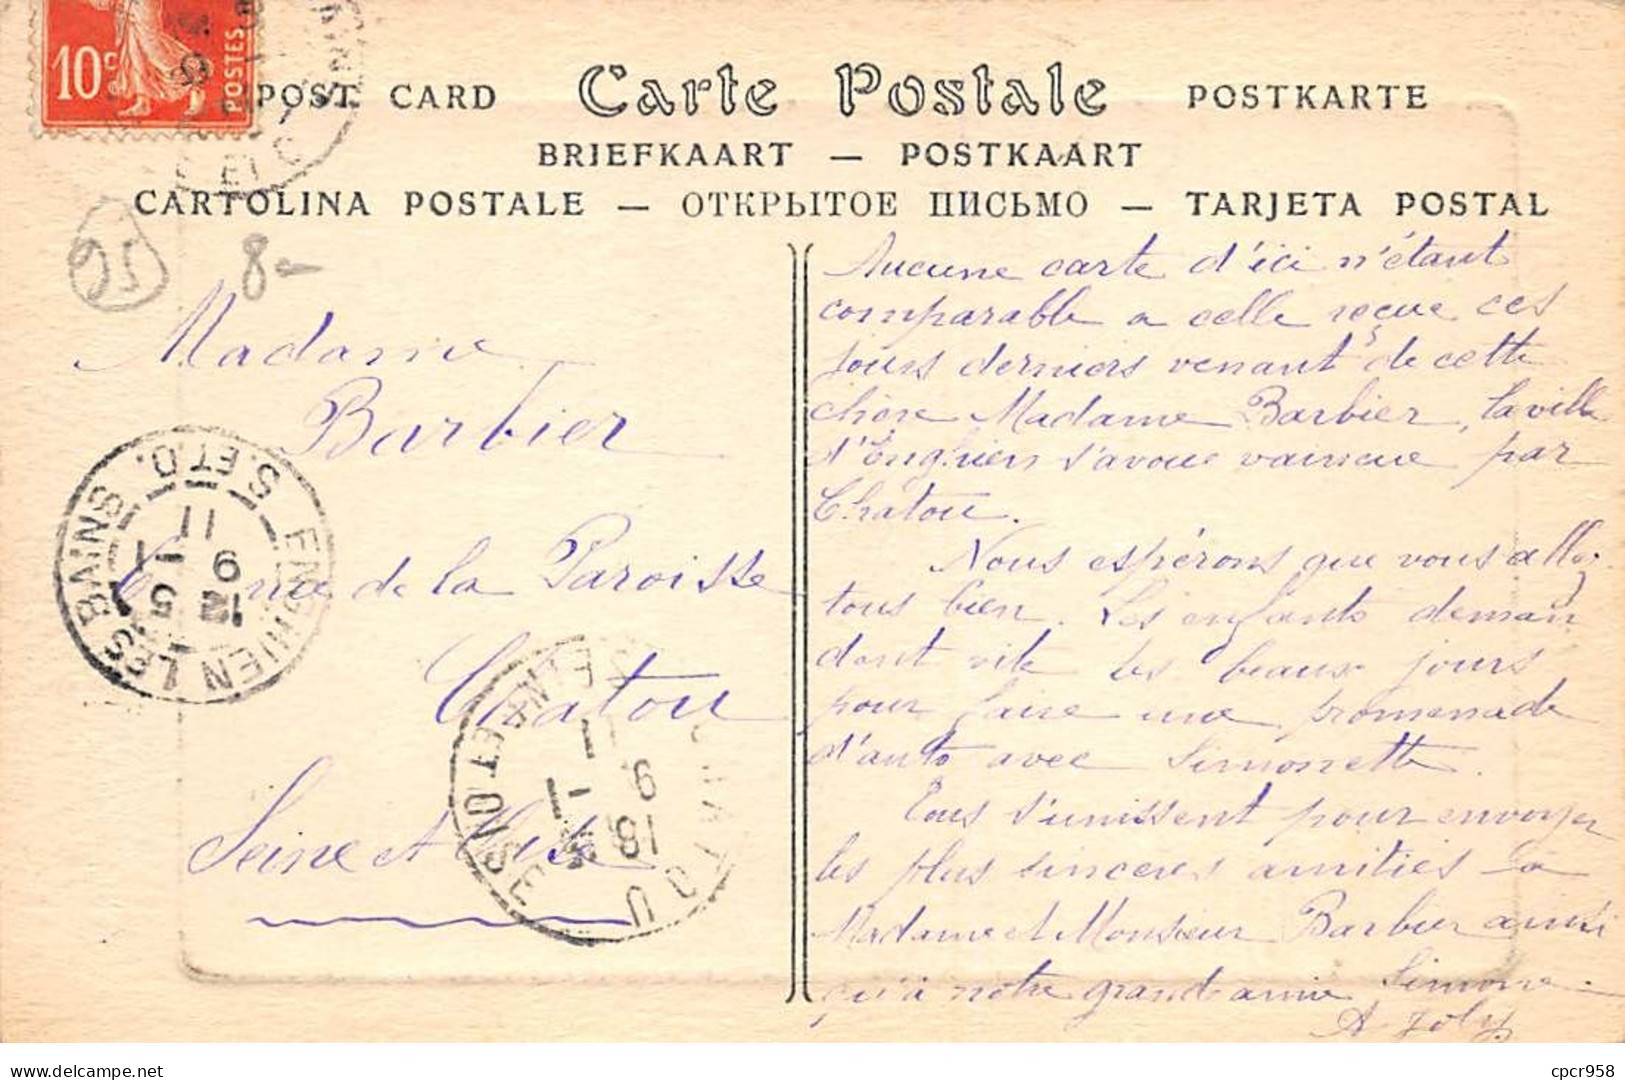 10c
POSTES
POST CARD Carte Postale POSTKARTE
BRIEFKAART — POSTKAART
CARTOLINA POSTALE — ОТКРЫТОЕ ПИСЬМО — TARJETA POSTAL
95
8-
Madame
Barbier
rue de la Paroisse
Chatou
Seine et Oise
ENGHIEN LES BAINS S. ET O.
11
15
9
12
CHATOU
SEINE ET OISE
18
9
Aucune carte d'ici n'étant
comparable a celle reçue ces
jours derniers venant de cette
chère Madame Barbier, la ville
d'Enghien s'avoue vaincue par
Chatou.
Nous espérons que vous allez
tous bien. Les enfants deman
dent vite les beaux jours
pour faire une promenade
d'auto avec Simonette.
Tous s'unissent pour envoyer
les plus sinceres amitiés a
Madame et Monsieur Barbier ainsi
qu'à notre grande amie Simone.
A Joly
Delcampe.net
cpcr958